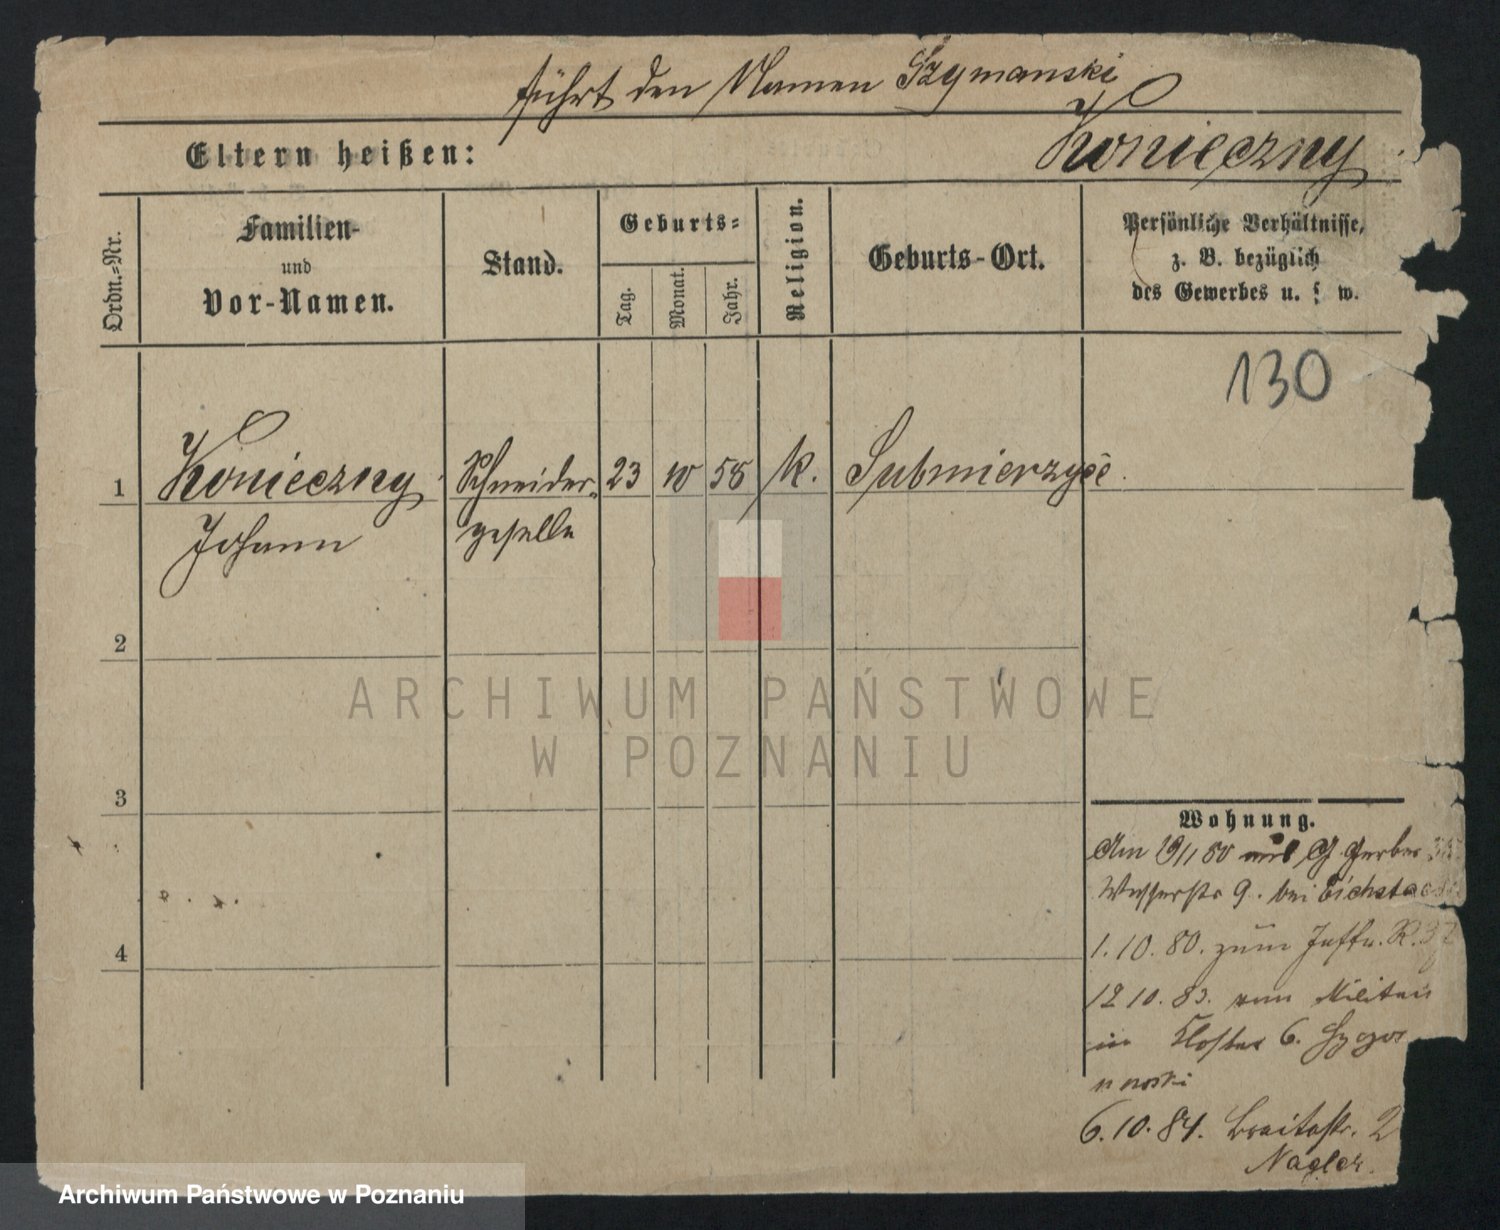 führt den Namen Szymanski
Eltern heißen: Konieczny
Ordn.-Nr.
Familien-
und
Vor-Namen.
Stand.
Geburts-
Tag.
Monat.
Jahr.
Religion.
Geburts-Ort.
Persönliche Verhältnisse,
z. B. bezüglich
des Gewerbes u. s. w.
130
1 Konieczny Schneider- 23 10 58 k. Sulmierzyce
Johann geselle
2
3
4
Wohnung.
Am 19/11 80 aus Gerber
Wasserstr 9. bei Eichstaedt
1. 10. 80. zum Inftr. R. 37
12 10. 83. vom Militair
in Kloster 6.
6. 10. 84. Breitestr. 2
Nagler.
ARCHIWUM PAŃSTWOWE
W POZNANIU
Archiwum Państwowe w Poznaniu